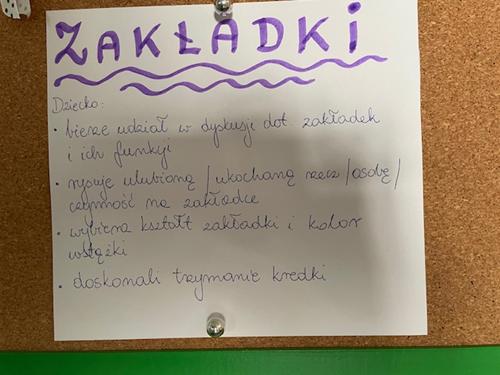 ZAKŁADKI
Dziecko:
• bierze udział w dyskusji dot. zakładek
i ich funkcji
• rysuje ulubioną / ukochaną rzecz / osobę /
czynność na zakładce
• wybiera kształt zakładki i kolor
wstążki
• doskonali trzymanie kredki